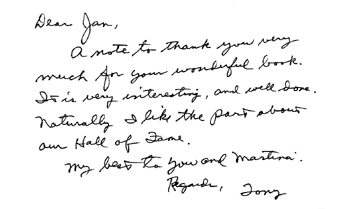 Dear Jan,
A note to thank you very
much for your wonderful book.
It is very interesting, and well done.
Naturally I like the part about
our Hall of Fame.
My best to you and Martina.
Regards, Tony